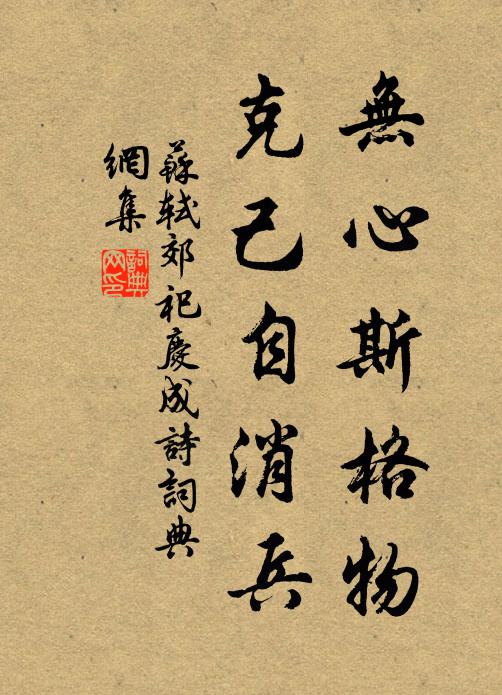 無心斯格物
克己自消兵
蘇軾郊祀慶成詩詞典
網集
詞典
网印